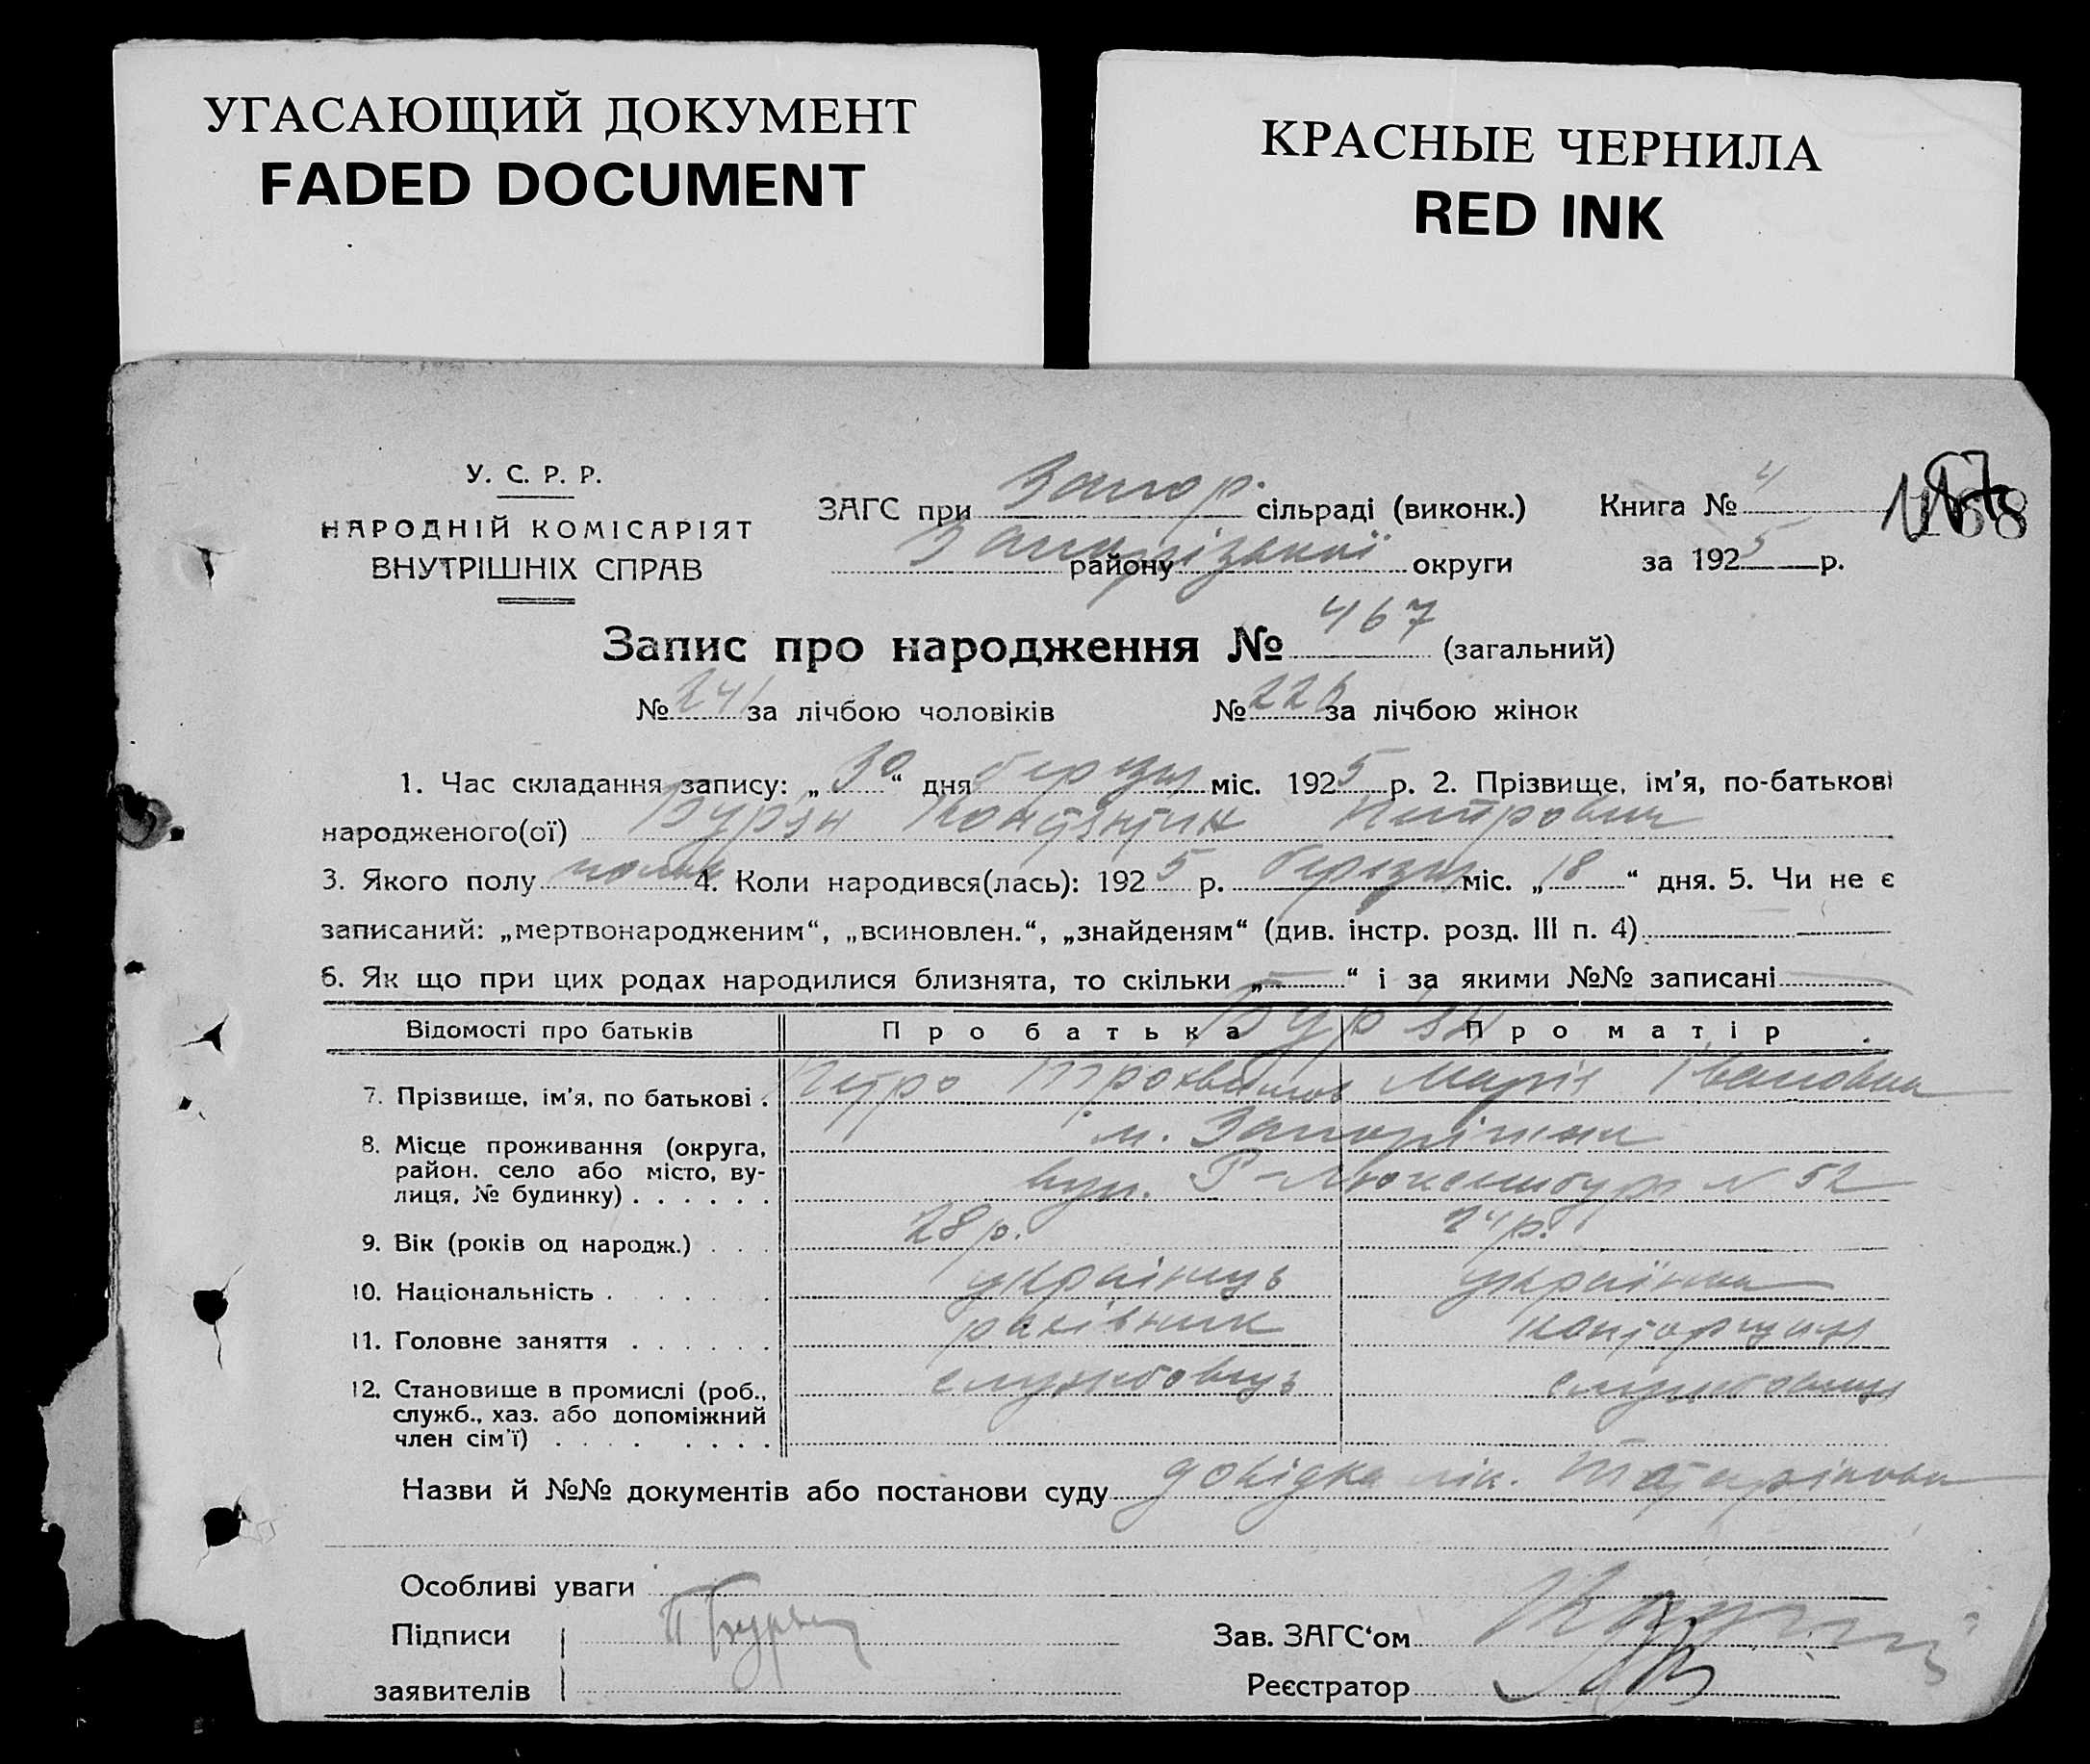 УГАСАЮЩИЙ ДОКУМЕНТ
FADED DOCUMENT
КРАСНЫЕ ЧЕРНИЛА
RED INK
У. С. Р. Р.
НАРОДНІЙ КОМІСАРІЯТ
ВНУТРІШНІХ СПРАВ
ЗАГС при Запор. сільраді (виконк.)
району Запорізької округи
Книга № 4
за 1925 р.
Запис про народження № 467 (загальний)
№ 241 за лічбою чоловіків № 226 за лічбою жінок
1. Час складання запису: „30“ дня березня міс. 1925 р. 2. Прізвище, ім'я, по-батькові
народженого(ої) Бурян Констянтин Петрович
3. Якого полу 4. Коли народився(лась): 1925 р. березня міс. „18“ дня. 5. Чи не є
записаний: „мертвонародженим“, „всиновлен.“, „знайденям“ (див. інстр. розд. III п. 4)
6. Як що при цих родах народилися близнята, то скільки „—“ і за якими №№ записані
Відомості про батьків Про батька Про матір
Бурян
7. Прізвище, ім'я, по батькові . Петро Марія Івановна
8. Місце проживання (округа, район, село або місто, вулиця, № будинку) . . . . . . м. Запоріжжя
вул. Р-Люксембург № 52
9. Вік (років од народж.) . . . 28 р. 24 р.
10. Національність . . . . . . українець українка
11. Головне заняття . . . . . . рахівник конторщиця
12. Становище в промислі (роб., служб., хаз. або допоміжний член сім'ї) . . . . . . . . службовець службовець
Назви й №№ документів або постанови суду довідка лік.
Особливі уваги
Підписи П Бурян
заявителів
Зав. ЗАГС‘ом
Реєстратор